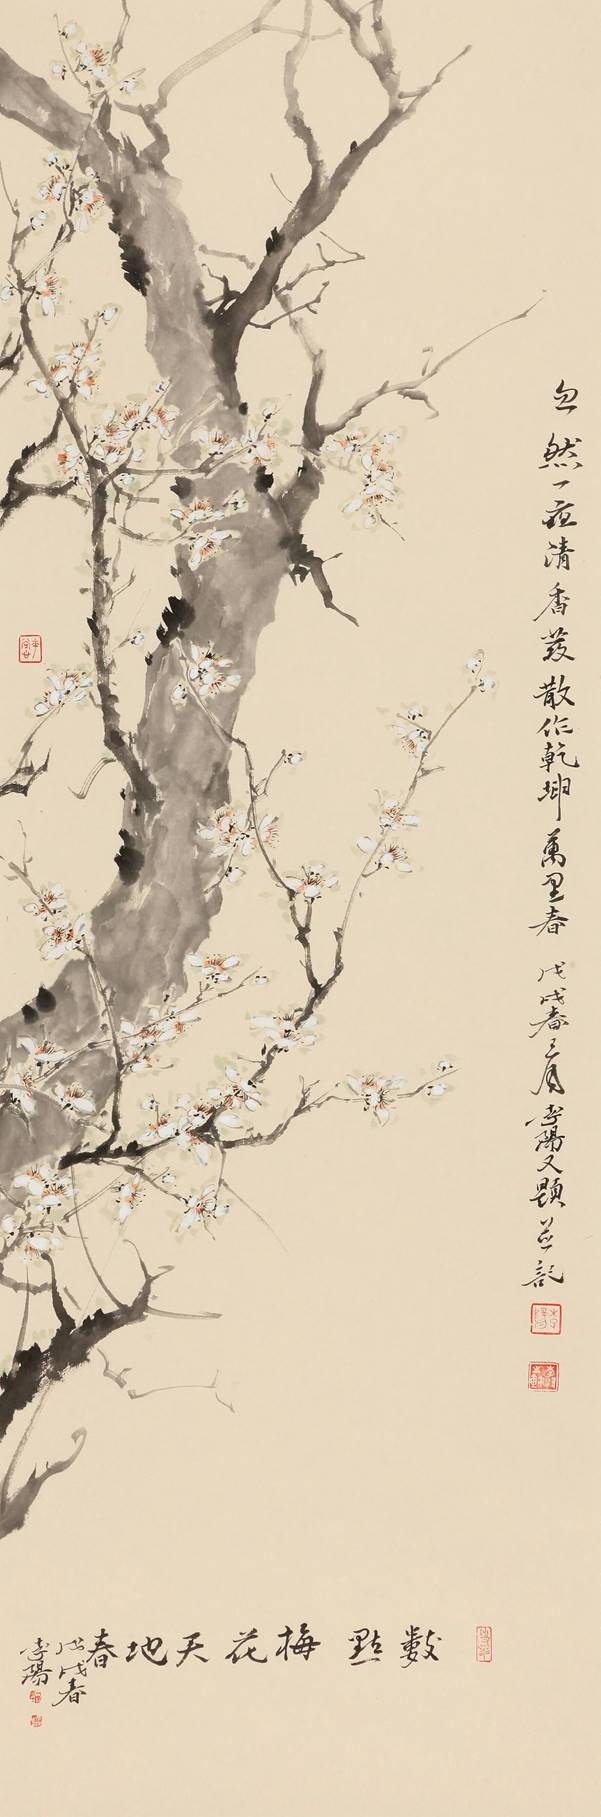 忽然一夜清香發散作乾坤萬里春 戊戌春三月李陽又題並記
數點梅花天地春
戊戌春
李陽